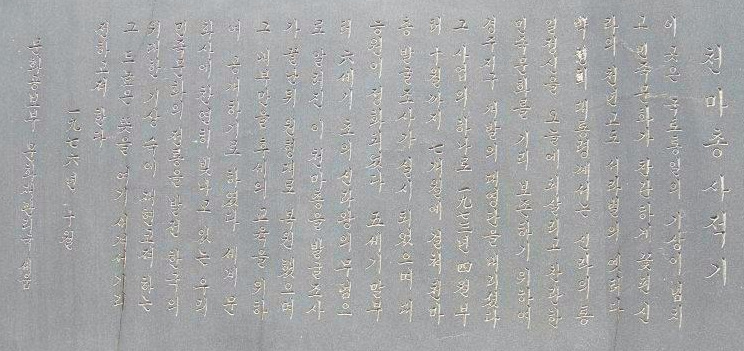 천마총사적기
이 곳은 국토통일의 기상이 넘치
고 민족문화가 찬란하게 꽃핀 신
라의 천년고도 서라벌의 옛터다
박정희 대통령께서는 신라의 통
일정신을 오늘에 되살리고 찬란한
민족문화를 기리 보존하기 위하여
경주지구 개발의 대영단을 내리셨다
그 사업의 하나로 一九七三년 四월부
터 十월까지 七개월에 걸쳐 천마
총 발굴조사가 실시되었으며 대
능원이 정화되었다 五세기 말부
터 六세기 초의 신라왕의 무덤으
로 알려진 이 천마총을 발굴조사
가 끝난 뒤 원형대로 복원했으며
그 내부만을 후세의 교육을 위하
여 공개하기로 하였다 세계문
화사에 찬연히 빛나고 있는 우리
민족문화의 전통을 한국의
위대한 기상 속에 하는
그 드높은 뜻을 여기 새겨
전하고저 한다
一九七六년 九월
문화공보부 문화재관리국 세움